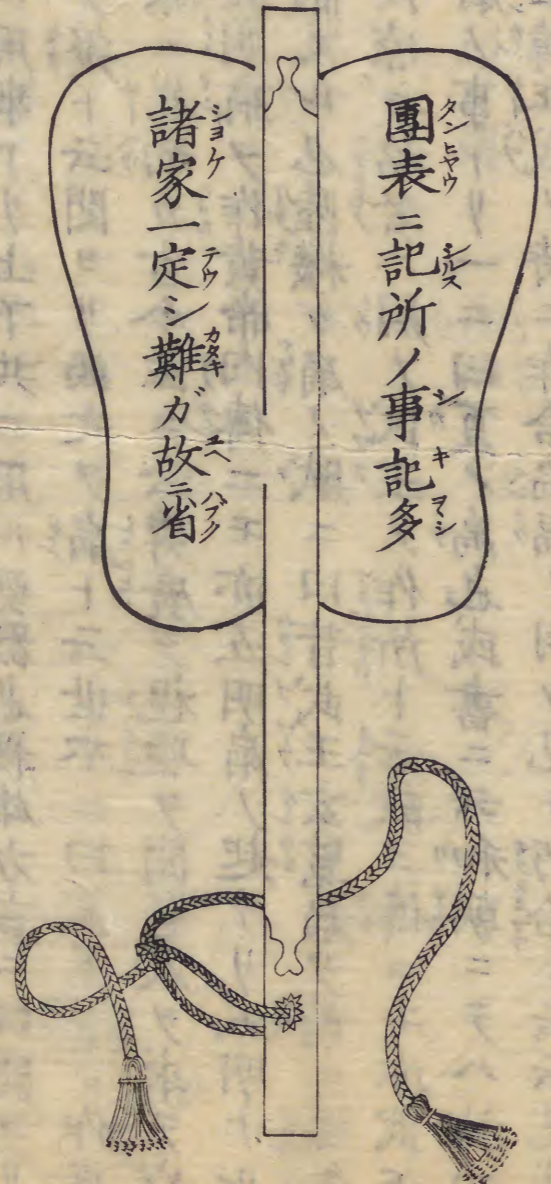 團表ニ記所ノ事記多
諸家一定シ難ガ故ニ省